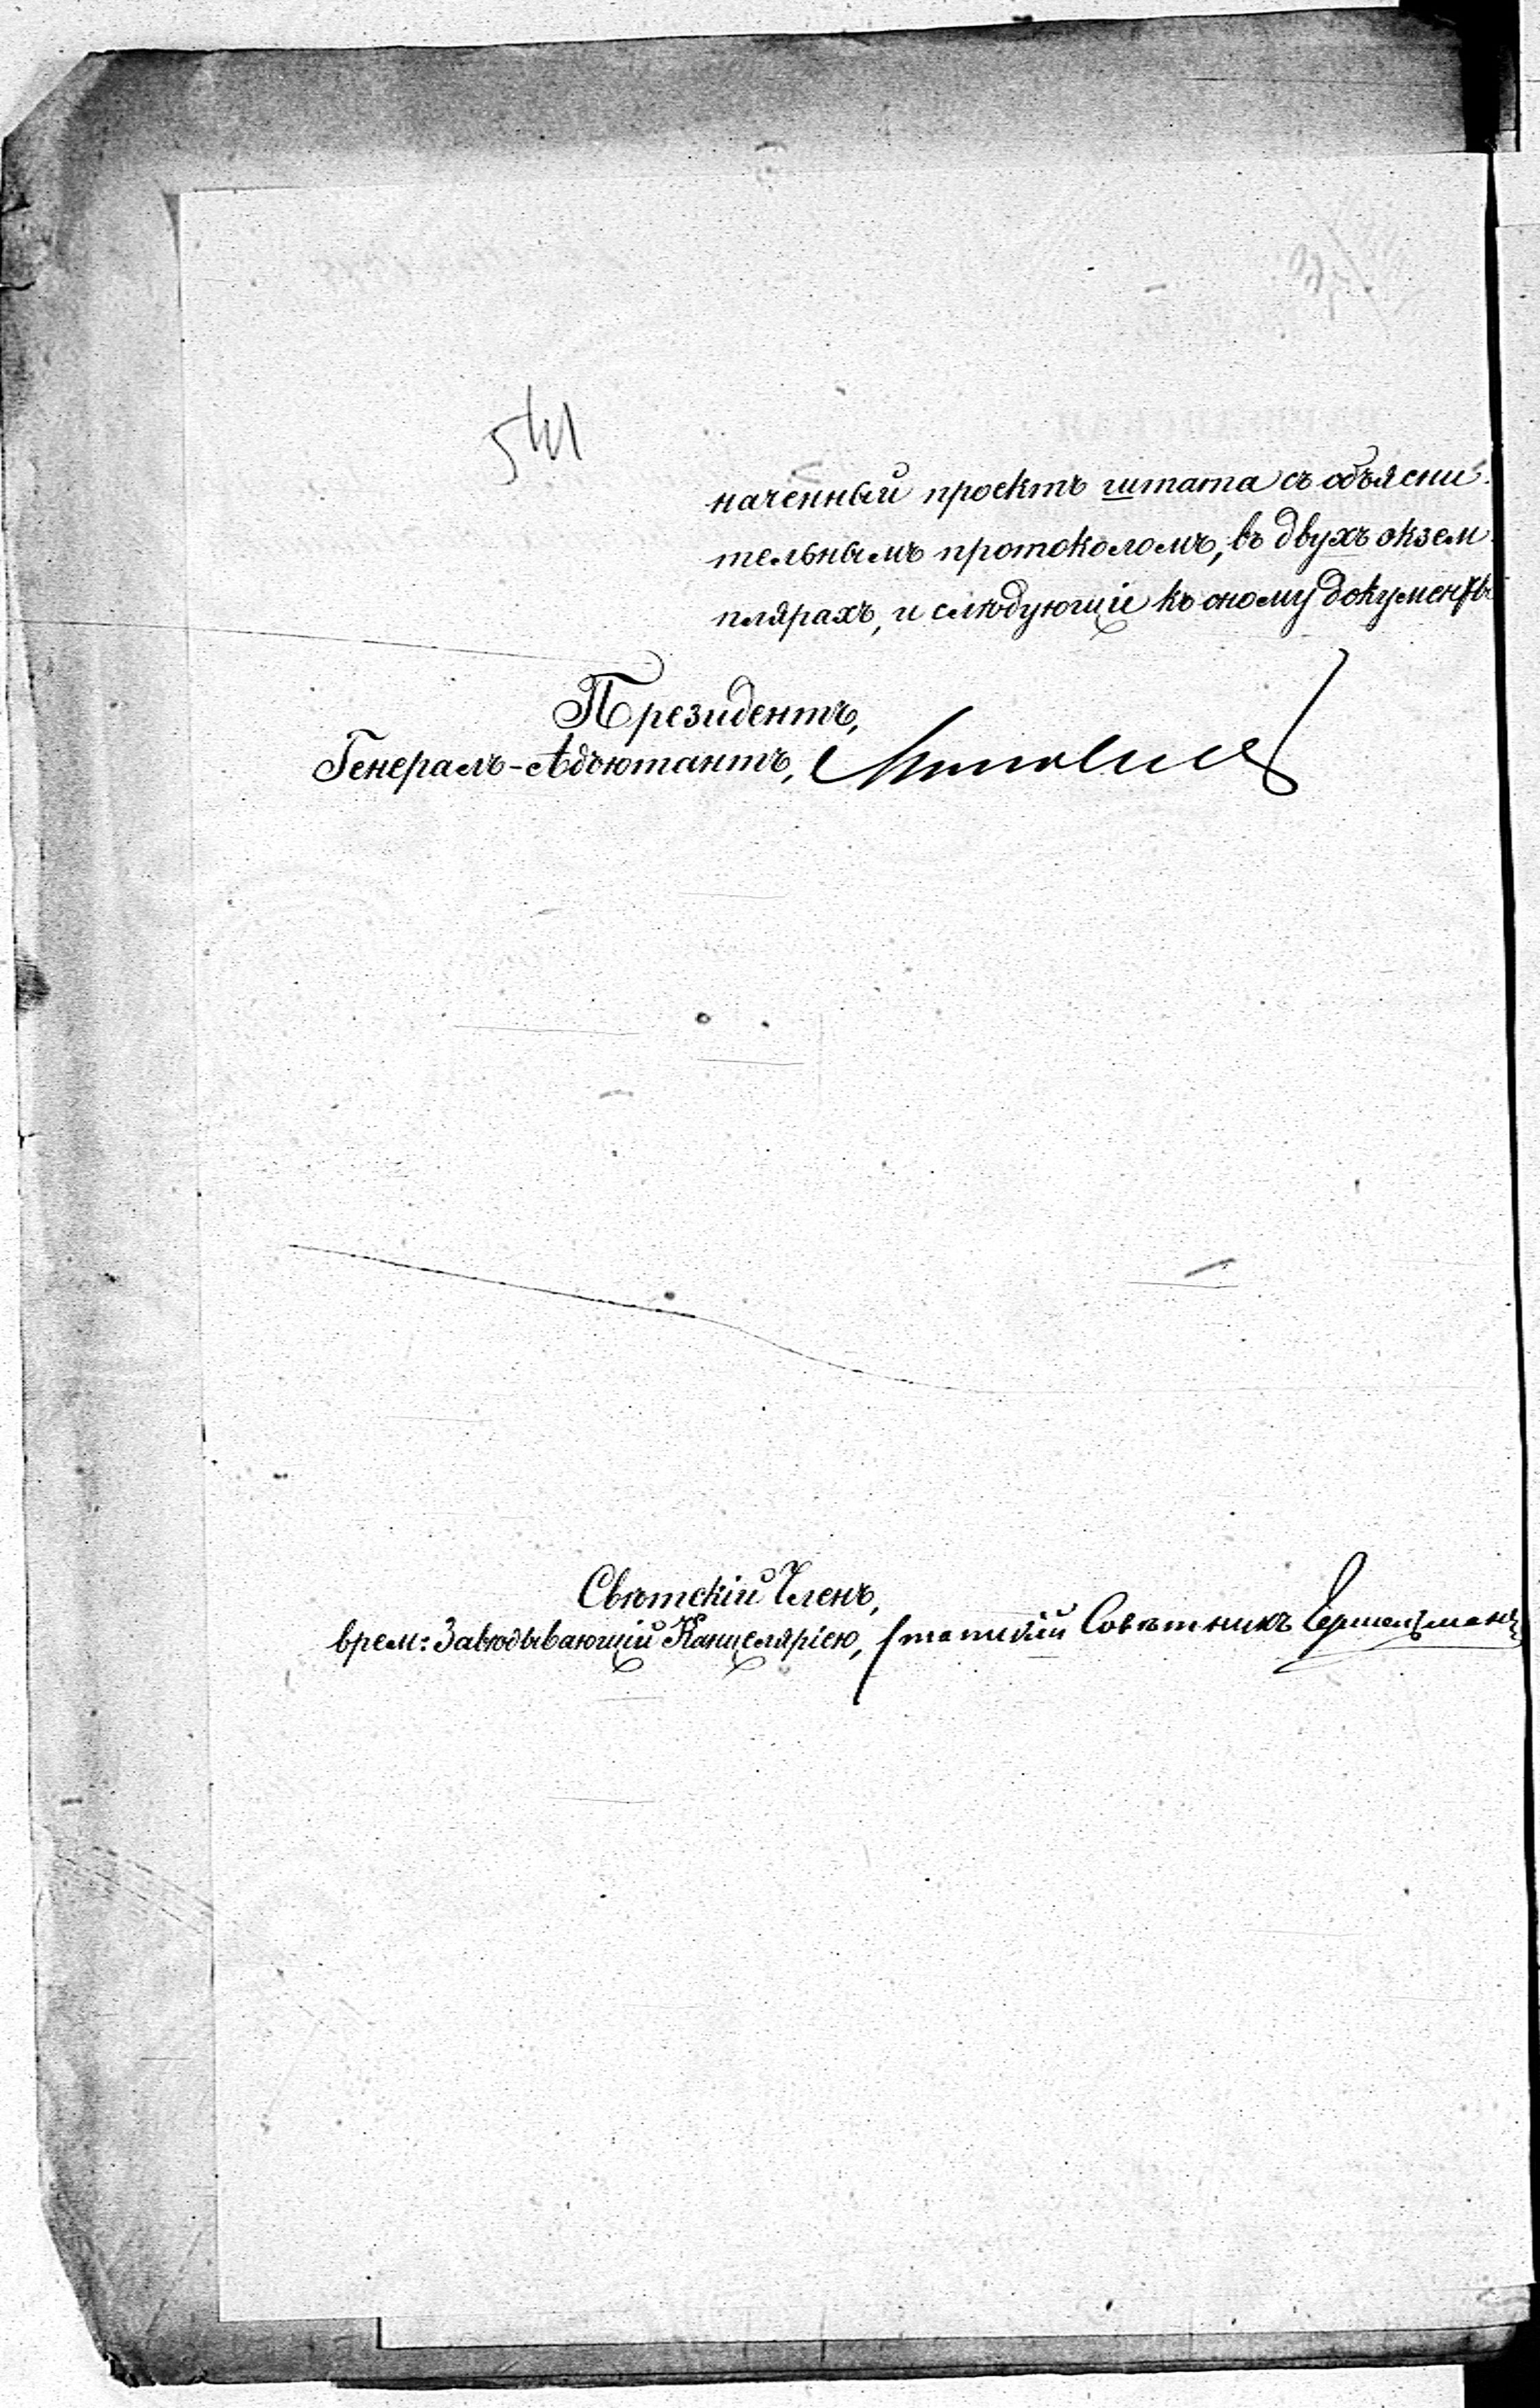 541
наченный проектъ штата съ объясни-
тельнымъ протоколомъ, въ двухъ экзем-
плярахъ, и слѣдующіе къ оному документы
Президентъ,
Генералъ-Адъютантъ,
Свѣтскій Членъ,
врем: Завѣдывающій Канцеляріею, Статскій Совѣтникъ